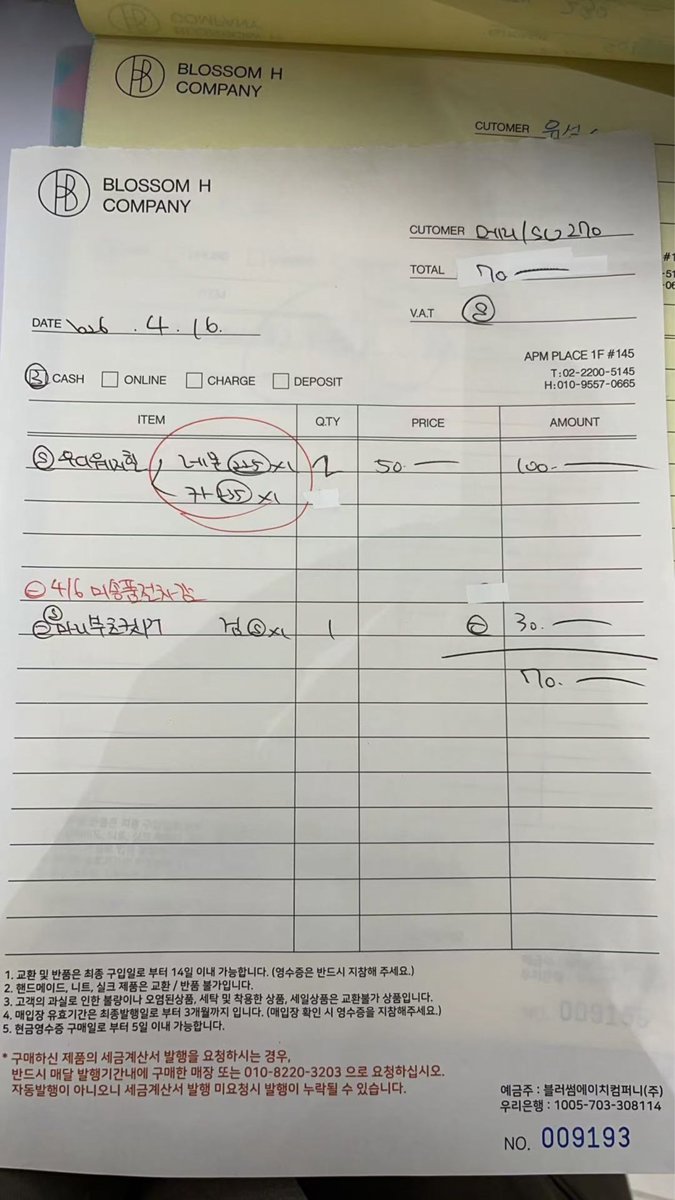 BLOSSOM H
COMPANY
CUTOMER
BLOSSOM H
COMPANY
CUTOMER 메리/SU270
TOTAL 70.
V.A.T
DATE 2026 . 4 . 16.
CASH ONLINE CHARGE DEPOSIT
APM PLACE 1F #145
T:02-2200-5145
H:010-9557-0665
ITEM Q.TY PRICE AMOUNT
레몬 x1 2 50. 100.
x1
4/6 미송품전차감
검 S x1 1 30.
70.
1. 교환 및 반품은 최종 구입일로 부터 14일 이내 가능합니다. (영수증은 반드시 지참해 주세요.)
2. 핸드메이드, 니트, 실크 제품은 교환 / 반품 불가입니다.
3. 고객의 과실로 인한 불량이나 오염된상품, 세탁 및 착용한 상품, 세일상품은 교환불가 상품입니다.
4. 매입장 유효기간은 최종발행일로 부터 3개월까지 입니다. (매입장 확인 시 영수증을 지참해주세요.)
5. 현금영수증 구매일로 부터 5일 이내 가능합니다.
* 구매하신 제품의 세금계산서 발행을 요청하시는 경우,
반드시 매달 발행기간내에 구매한 매장 또는 010-8220-3203 으로 요청하십시오.
자동발행이 아니오니 세금계산서 발행 미요청시 발행이 누락될 수 있습니다.
예금주 : 블러썸에이치컴퍼니(주)
우리은행 : 1005-703-308114
NO. 009193